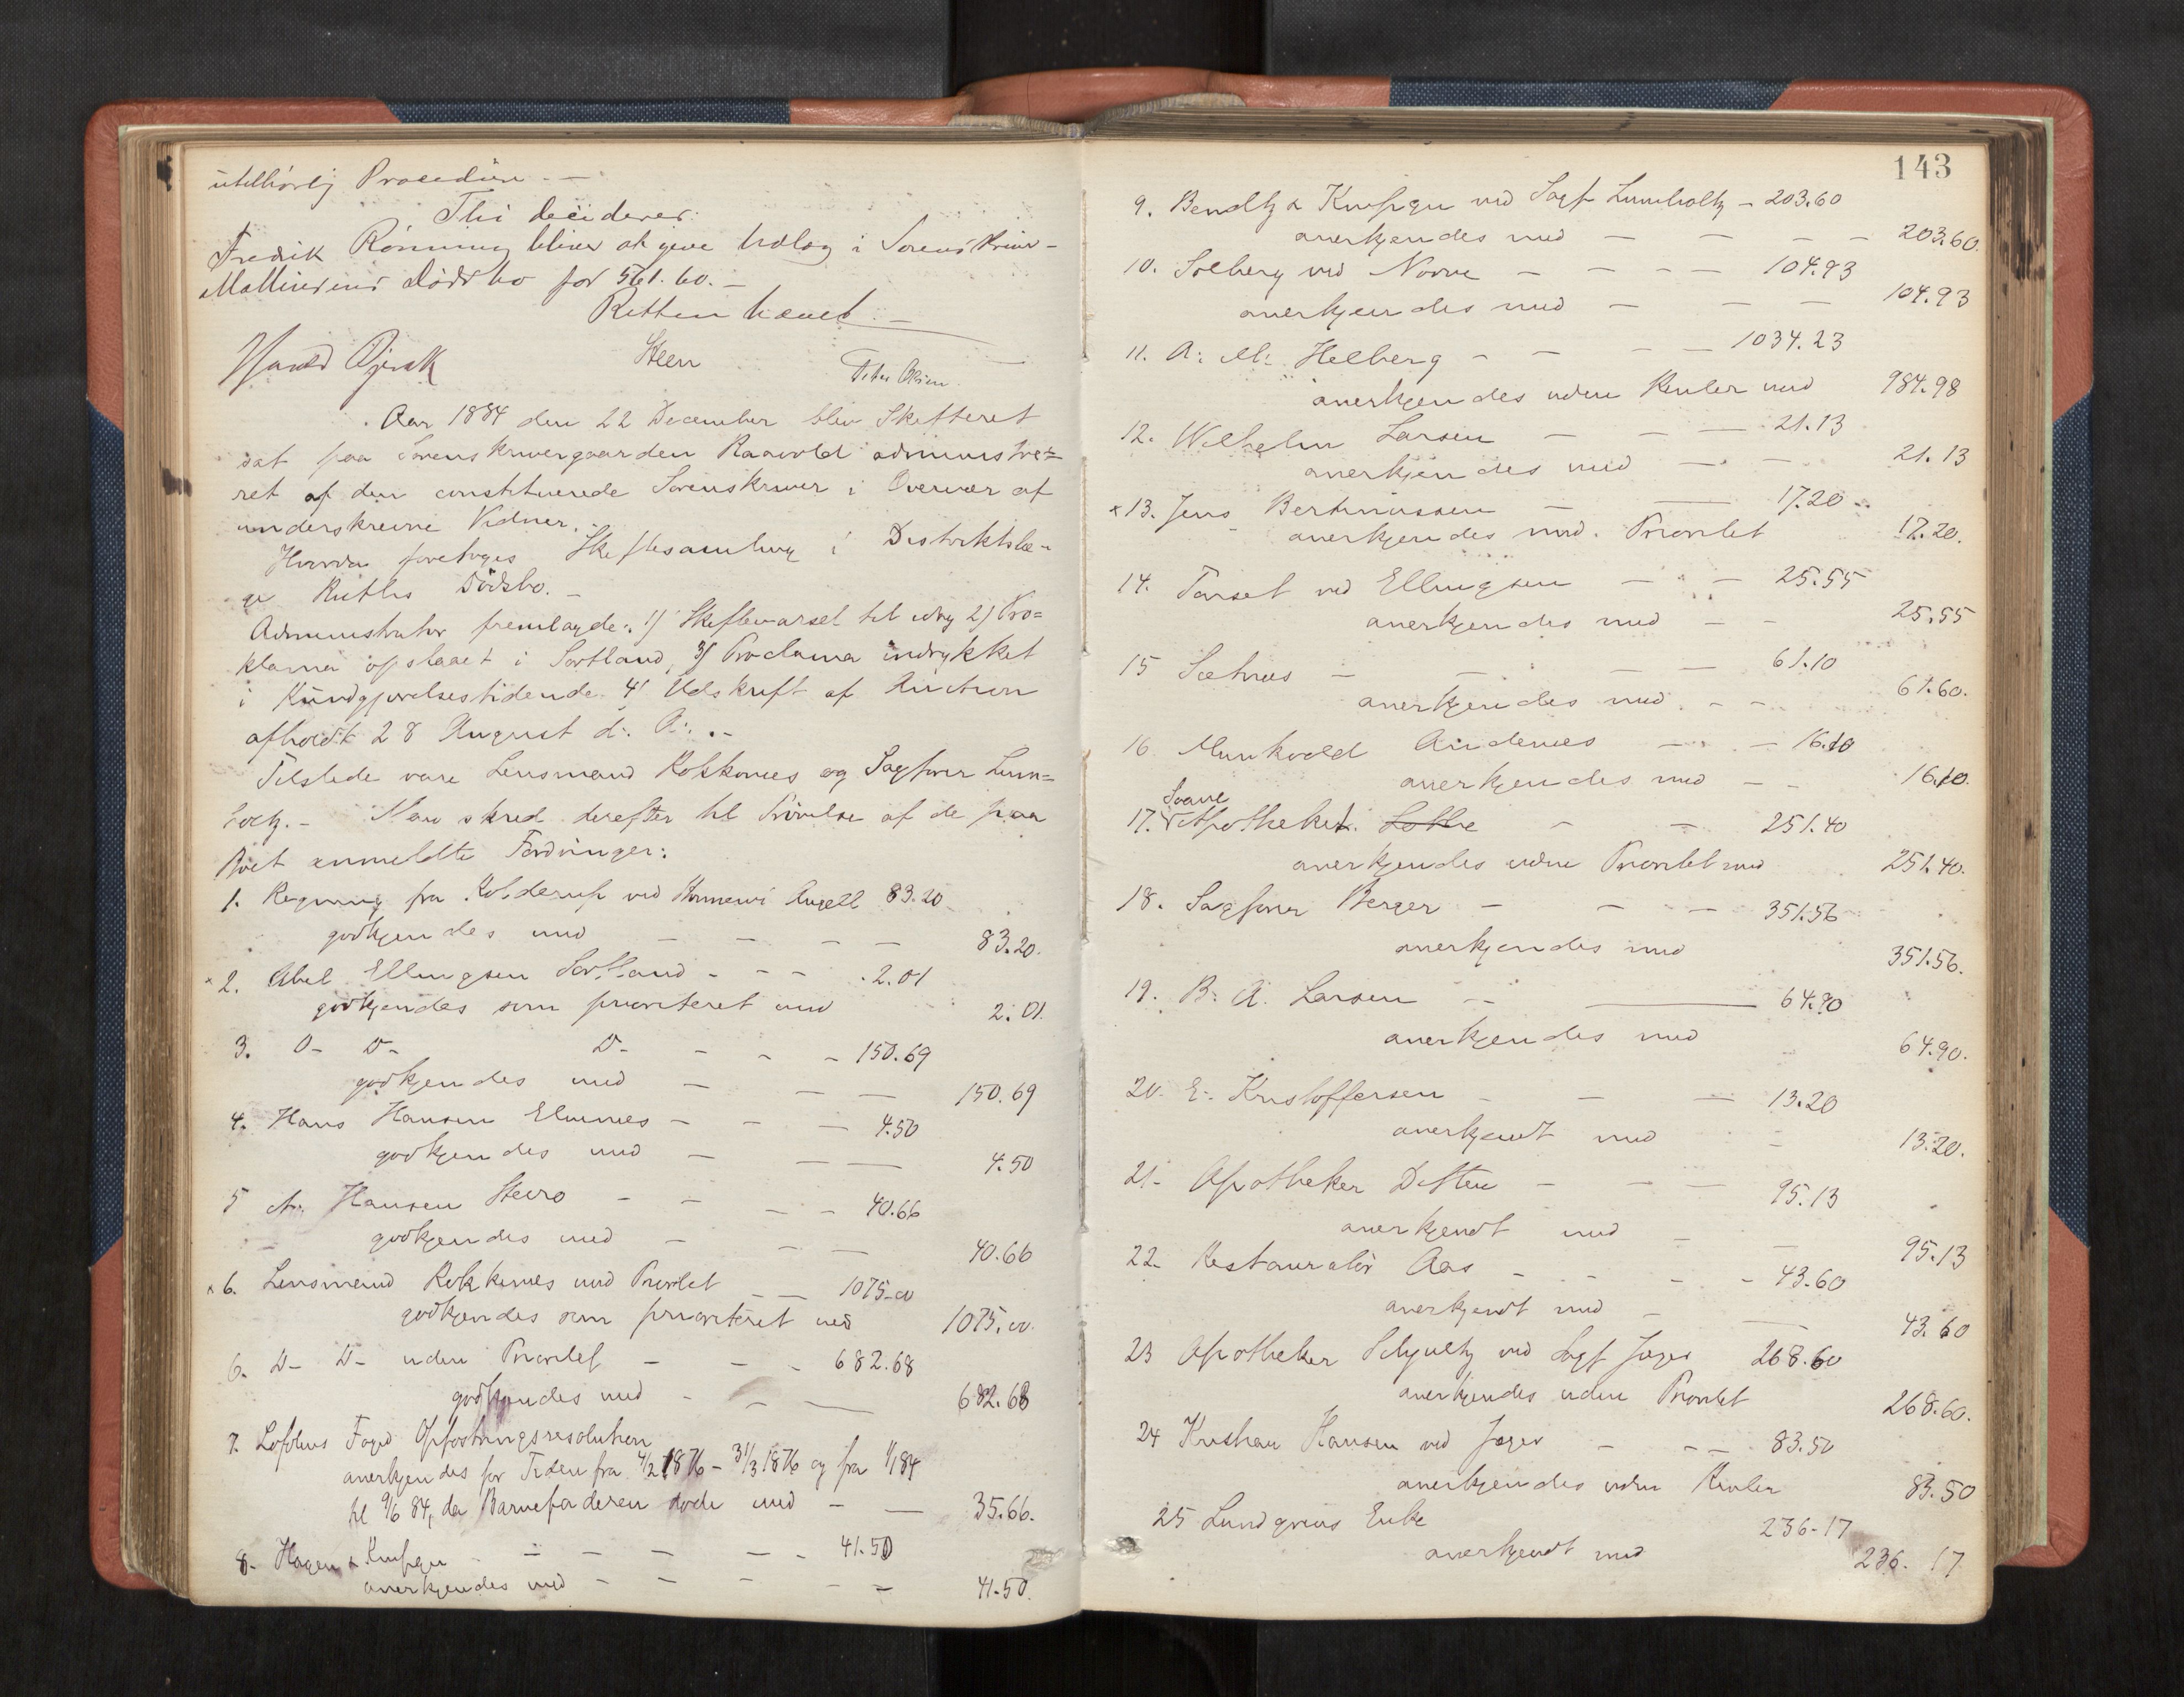 utilbørlig Procedure. —
Thi decideres:
Fredrik Rønning bliver at give Udlæg i Sorenskriver
Mallings Dødsbo for 561.60. —
Retten hævet. —
Steen
Peter Olsen
Aar 1884 den 22 December blev Skifteret
sat paa Sorenskrivergaarden administre=
ret af den constituerede Sorenskriver i Overvær af
underskrevne Vidner. —
Hvorda foretoges Skiftesamling i Distriktslæ-
ge Dødsbo. —
Administrator fremlagde: 1) Skiftevarsel til 2) Pro=
klama opslaaet i Sortland, 3) Proclama indrykket
i Kundgjørelsestidende 4) Udskrift af Auction
afholdt 28 August d: A: . —
Tilstede vare Lensmand Rokkones og Sagfører Lum=
holtz. — Man skred derefter til Prøvelse af de paa
Boet anmeldte Fordringer:
1. Regning fra Kolderup ved Angell 83.20
godkjendes med — — — — 83.20.
x 2. Abel Ellingsen Sortland - - - 2.01
godkjendes som prioriteret med 2.01.
3. D- D- D- - - - 150.69
godkjendes med — — — 150.69
4. Hans Hansen - - — 4.50
godkjendes med — — — 4.50
5 A. Hansen Steiro - - — - 40.66
godkjendes med — — — 40.66
x 6. Lensmand Rokkones med Prioritet — — 1075.00
godkjendes som prioriteret med 1075.00.
6. D- D- uden Prioritet — — - 682.68
godkjendes med - — — 682.68
7. Lofotens Foged Opfostringsresolution
anerkjendes for Tiden fra 4/2 1876 - 31/3 1876 og fra 1/1 84
til 9/6 84, da Barnefaderen døde med — — 35.66.
8. Hagen & Kompgni — — — - 41.50
anerkjendes med — — — — — 41.50.
143
9. Bendtz & Kompgni ved Sagf Lumholtz — 203.60
anerkjendes med — — — — 203.60.
10. Solberg ved Norvue — — - — 104.93
anerkjendes med — — — 104.93
11. A: M: Helberg - — — — 1034.23
anerkjendes uden Renter med 984.98
12. Wilhelm Larsen — — — 21.13
anerkjendes med — — 21.13
x 13. Jens Bertinussen — — 17.20
anerkjendes med. Prioritet 17.20.
14. Tarset ved Ellingsen — - — 25.55
anerkjendes med — - 25.55
15 Sætnes — — — — 61.10
anerkjendes med - - 61.60.
16 Munkvold Andenes — - — 16.10
anerkjendes med — - 16.10.
Svane
17. Apotheket. Lothe - — 251.40
anerkjendes uden Prioritet med 251.40.
18. Sagfører Berger — — — 351.56
anerkjendes med 351.56.
19. B: A. Larsen — — 64.90
anerkjendes med 64.90.
20. E. Kristoffersen - — — 13.20
anerkjendt med — 13.20.
21. Apotheker Ditten — — — 95.13
anerkjendt med - — 95.13
22. Restauratør Aas — - - - 43.60
anerkjendt med — — 43.60
23 Apotheker Schjueltz ved Sagf Jæger 268.60
anerkjendes uden Prioritet 268.60.
24 Kristian Hansen ved Jæger - - - 83.50
anerkjendes uden Renter 83.50
25 Lundgrens Enke 236-17
anerkjendt med 236. 17